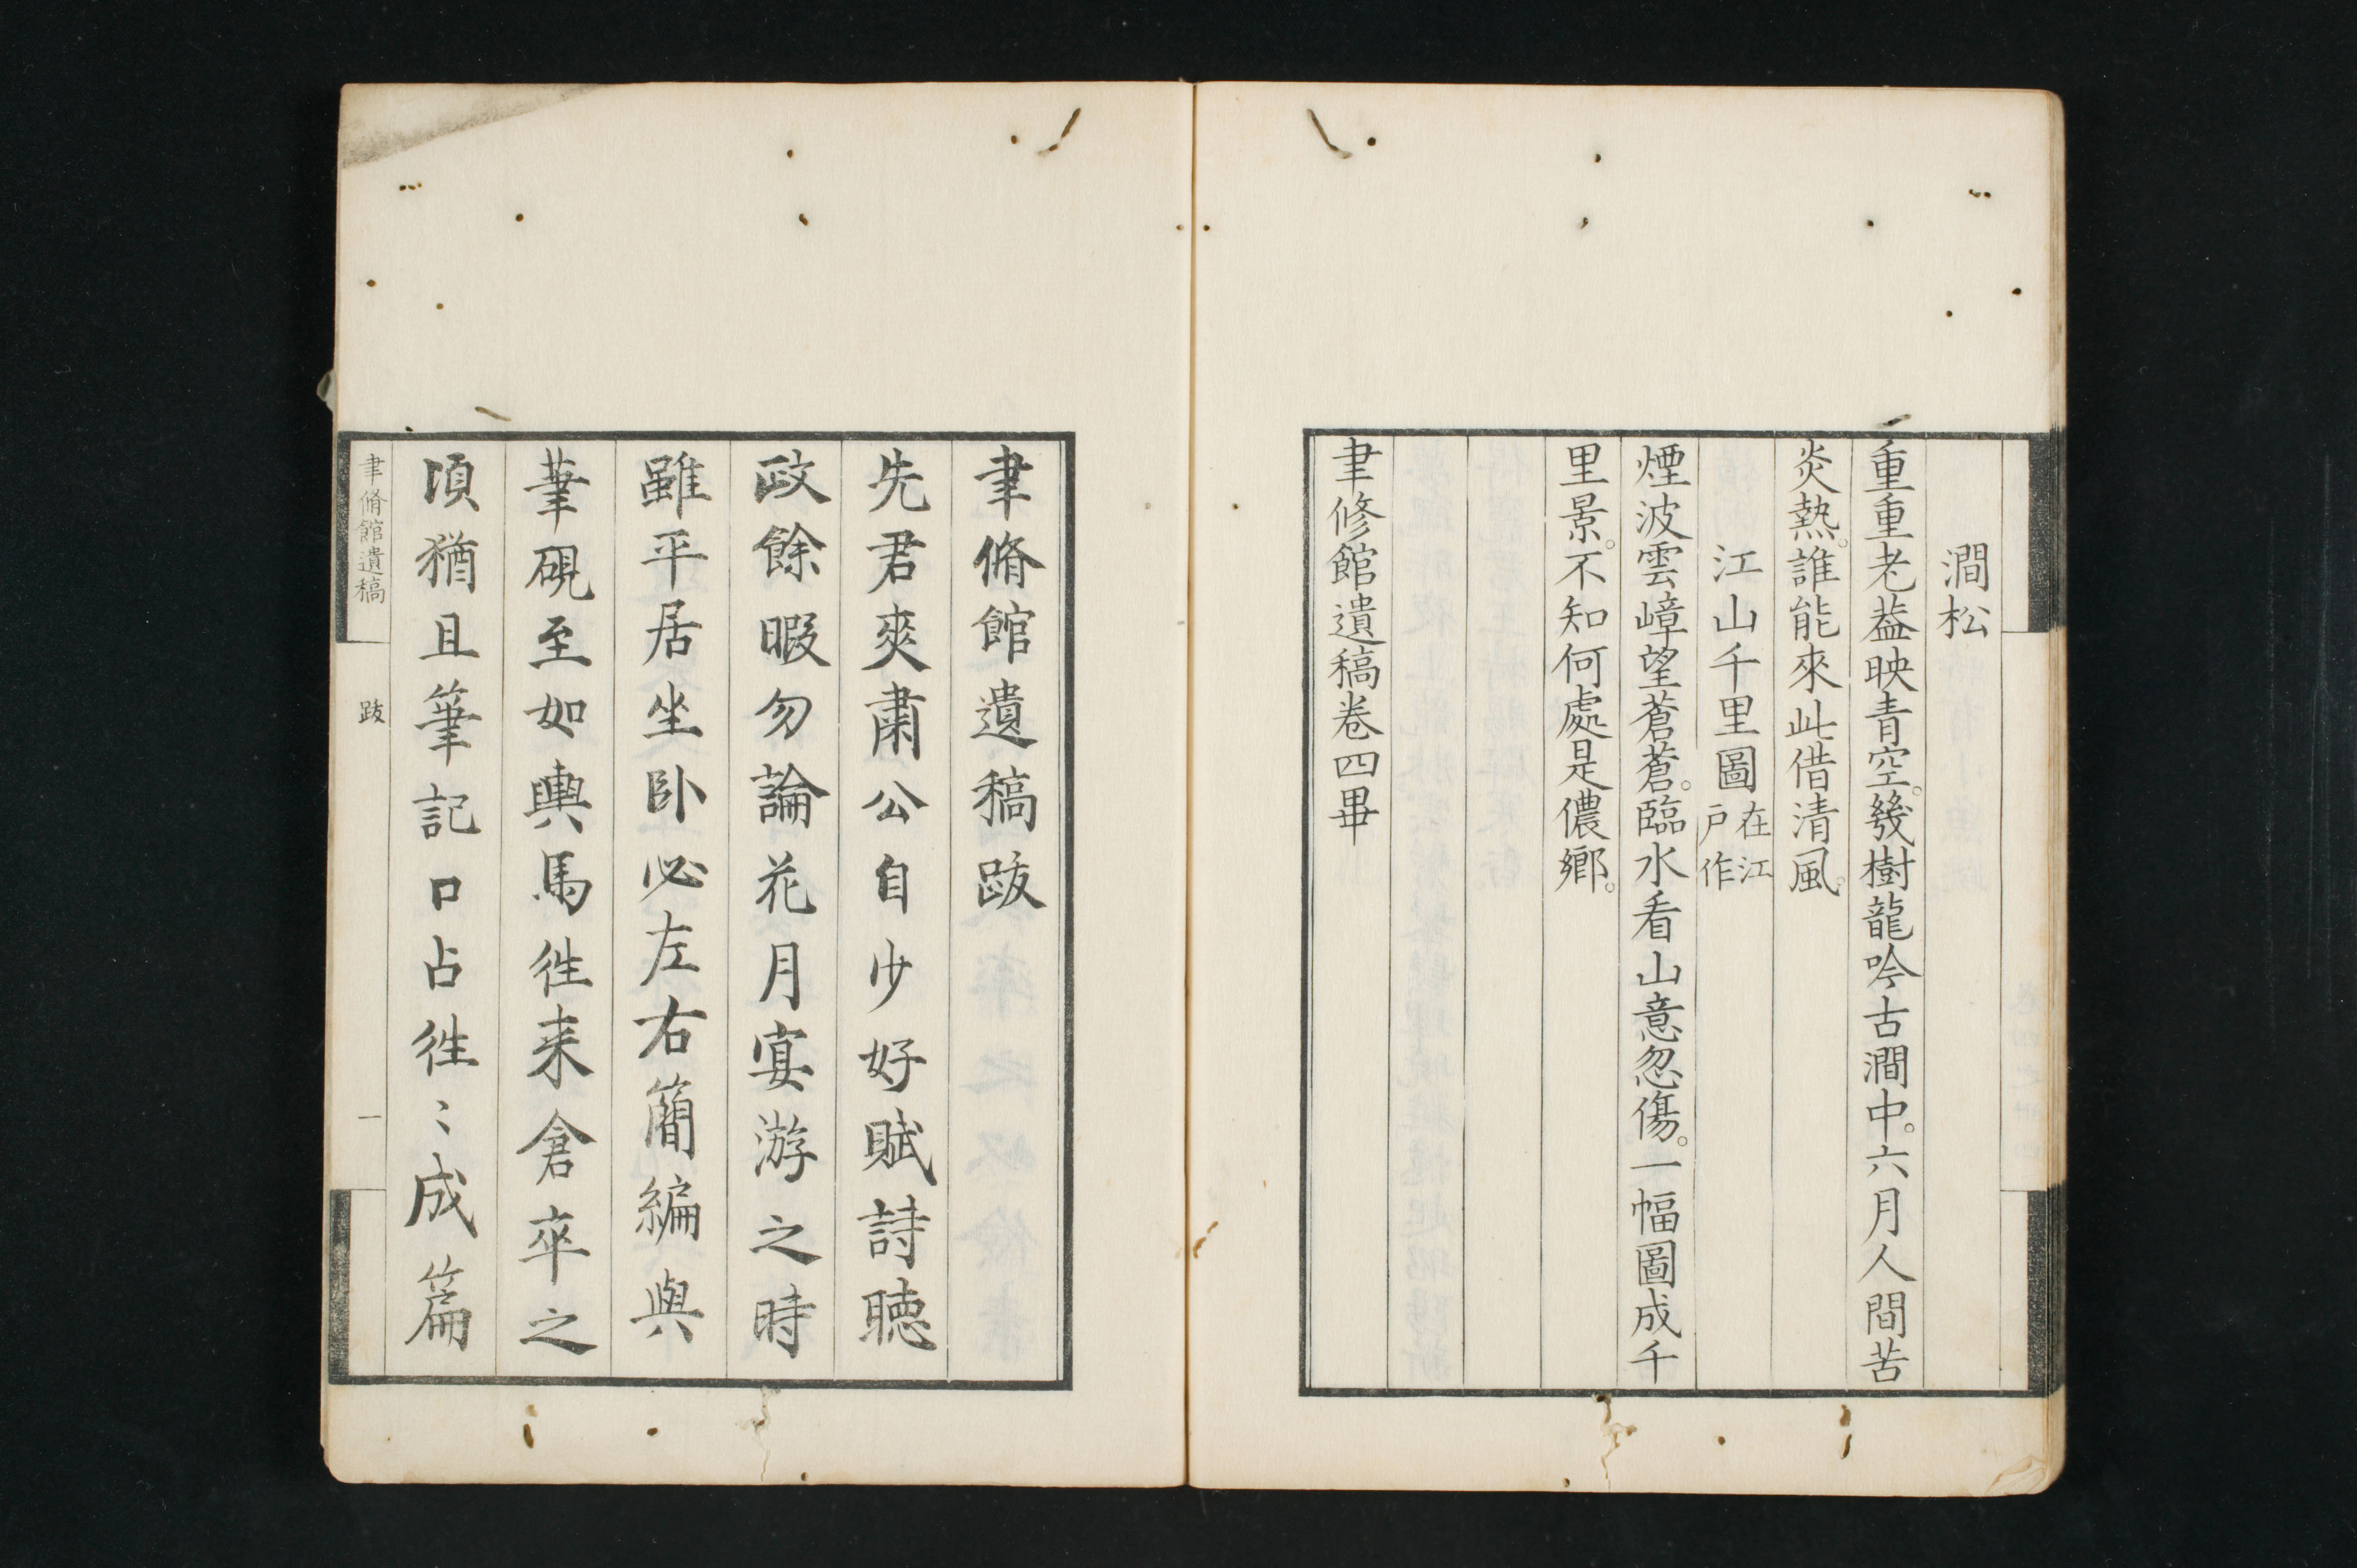 澗松
重重老葢映青空。幾樹龍吟古澗中。六月人間苦
炎熱。誰能來此借清風。
江山千里圖在江戸作
煙波雲嶂望蒼蒼。臨水看山意忽傷。一幅圖成千
里景。不知何處是儂鄉。
聿修館遺稿卷四畢
聿脩館遺稿跋
先君爽肅公自少好賦詩聴
政餘暇勿論花月宴游之時
雖平居坐卧必左右簡編與
筆硯至如輿馬徃来倉卒之
頃猶且筆記口占徃〻成篇
聿脩館遺稿
跋
一